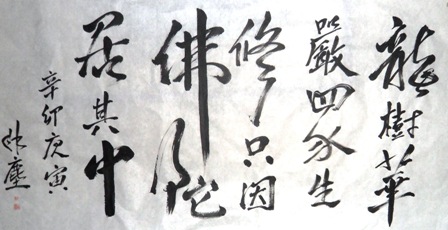 龍樹華
嚴四爻生
修只因
佛陀
居其中
辛卯庚寅